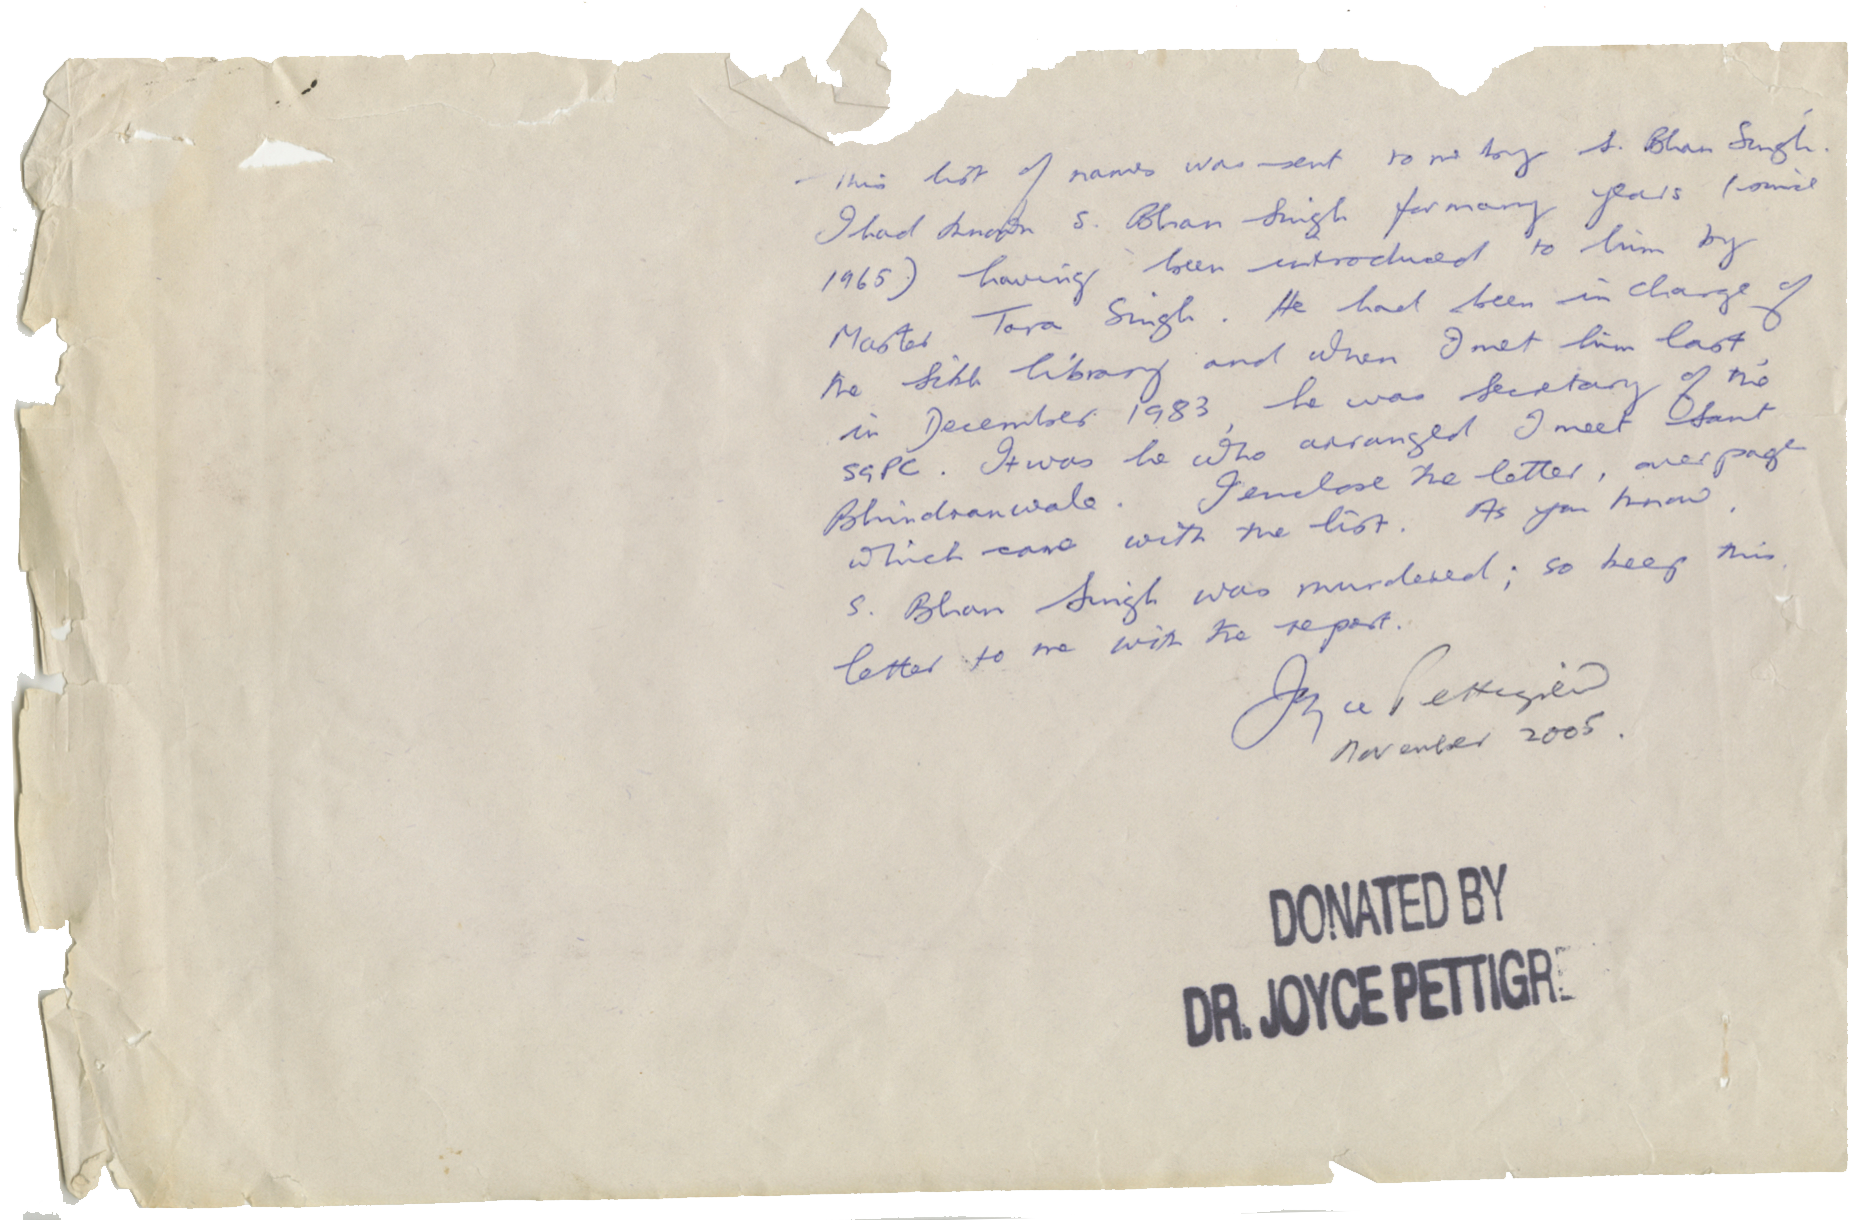 This list of names was sent to me by S. Bhan Singh.
I had known S. Bhan Singh for many years (since
1965) having been introduced to him by
Master Tara Singh. He had been in charge of
the Sikh library and when I met him last,
in December 1983, he was secretary of the
SGPC. It was he who arranged I meet Sant
Bhindranwale. I enclose the letter, over page
which came with the list. As you know,
S. Bhan Singh was murdered; so keep this
letter to me with the report.
Joyce Pettigrew
November 2005.
DONATED BY
DR. JOYCE PETTIGRE